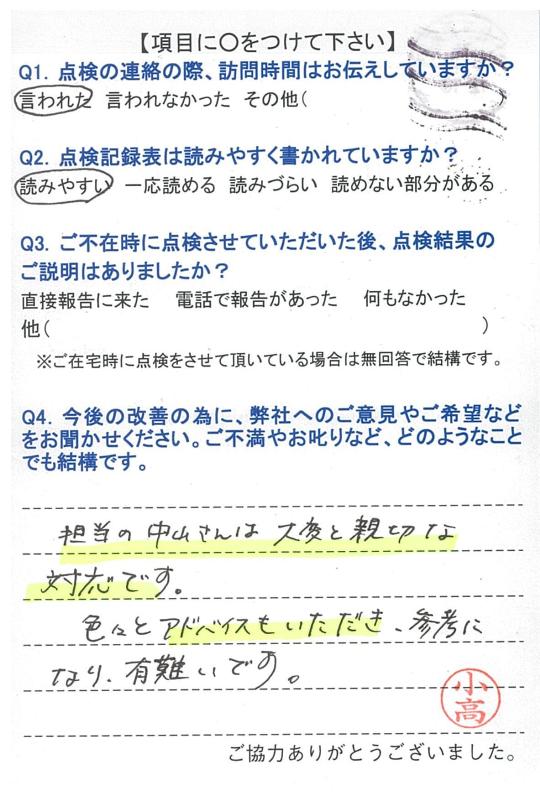 【項目に〇をつけて下さい】
Q1. 点検の連絡の際、訪問時間はお伝えしていますか？
言われた 言われなかった その他( )
Q2. 点検記録表は読みやすく書かれていますか？
読みやすい 一応読める 読みづらい 読めない部分がある
Q3. ご不在時に点検させていただいた後、点検結果の
ご説明はありましたか？
直接報告に来た 電話で報告があった 何もなかった
他( )
※ご在宅時に点検をさせて頂いている場合は無回答で結構です。
Q4. 今後の改善の為に、弊社へのご意見やご希望など
をお聞かせください。ご不満やお叱りなど、どのようなこと
でも結構です。
担当の中山さんは大変と親切な
対応です。
色々とアドバイスもいただき、参考に
なり、有難いです。
小高
ご協力ありがとうございました。